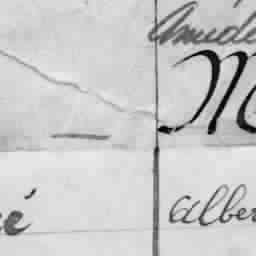 Amédé
M
é
Alber